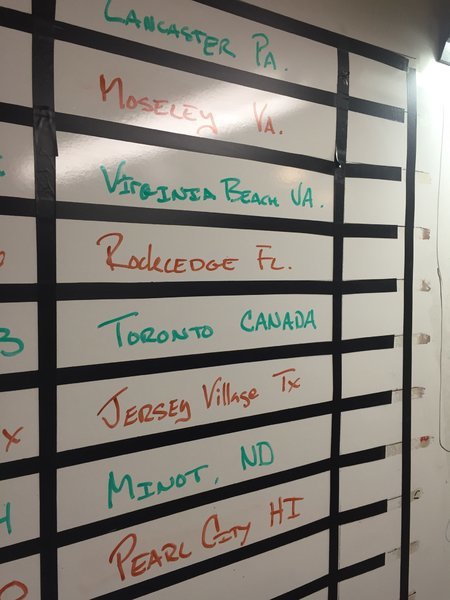 LANCASTER PA.
MOSELEY VA.
VIRGINIA BEACH VA.
ROCKLEDGE FL.
3 TORONTO CANADA
x JERSEY Village Tx
MINOT, ND
PEARL CITY HI